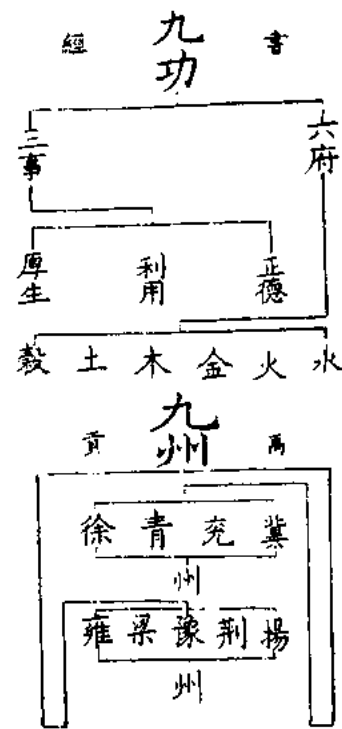 書經
九功
六府
三事
正德 利用 厚生
水 火 金 木 土 穀
九州
禹貢
冀 兗 青 徐
州
揚 荆 豫 梁 雍
州